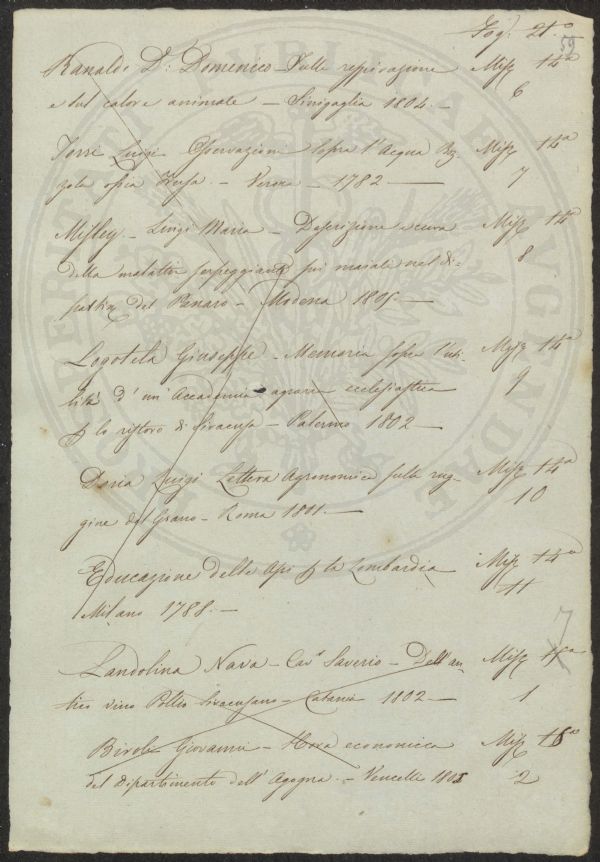 Fog. 21.o
59
Ranaldi Dr. Domenico - Sulla respirazione Misc 14a
e sul calore animale - Sinigaglia 1804. - 6
Torri Luigi Osservazioni sopra l'Acqua Misc 14a
zola ossia - Verona - 1782 - 7
Misley - Luigi Maria - Descrizione e cura Misc 14a
della malattia serpeggiante fui maiali nel di- 8
del Panaro - Modena 1805 -
Logoteta Giuseppe - Memoria sopra l'uti- Misc 14a
lità d'un' Accademia agraria ecclesiastica 9
p lo ristoro di Siracusa - Palermo 1802 -
Doria Luigi Lettera Agronomica sulla rug- Misc 14a
gine del Grano - Roma 1801. - 10
Educazione delle Api p la Lombardia Misc 14a
Milano 1788. - 11
7
Landolina Nava - Cavr Saverio - Dell'an Misc
tico vino Pollio Siracusano - Catania 1802 - 1
Biroli Giovanni - Flora economica Misc
del Dipartimento dell'Agogna. - Vercelli 1805 2